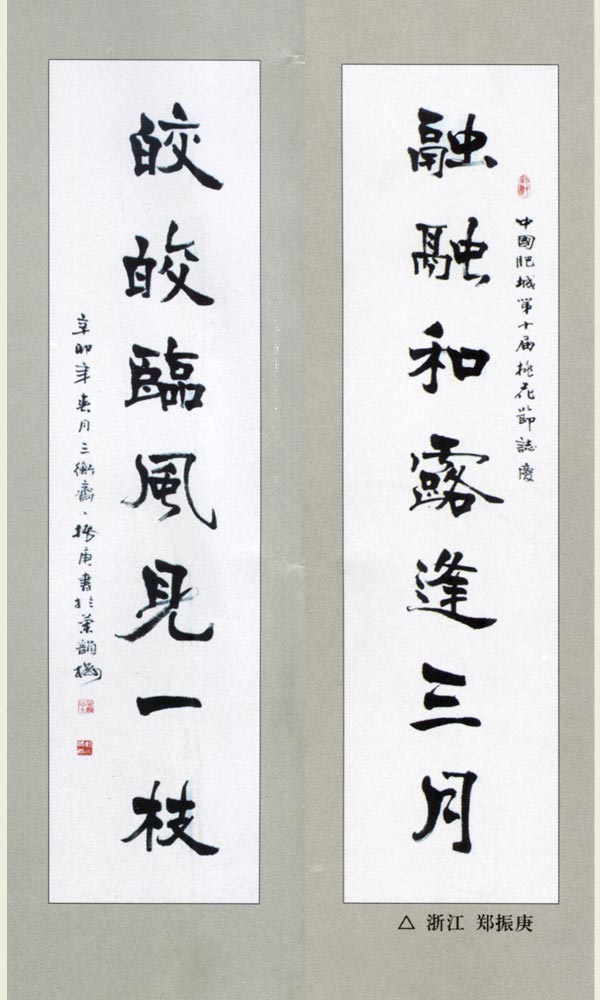 融融和露逢三月
中國肥城第十届桃花節誌慶
皎皎臨風見一枝
辛卯年春月三衡齋、振庚書於葉韻樓
△ 浙江 郑振庚